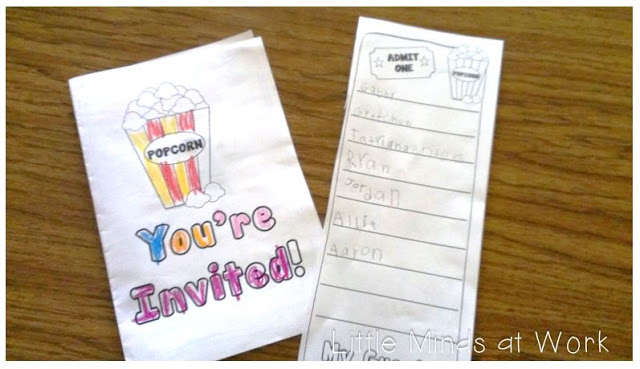 POPCORN
You're
Invited!
ADMIT
ONE
POPCORN
Gabby
Gretchen
Ryan
Jordan
Allie
Aaron
My
Little Minds at Work